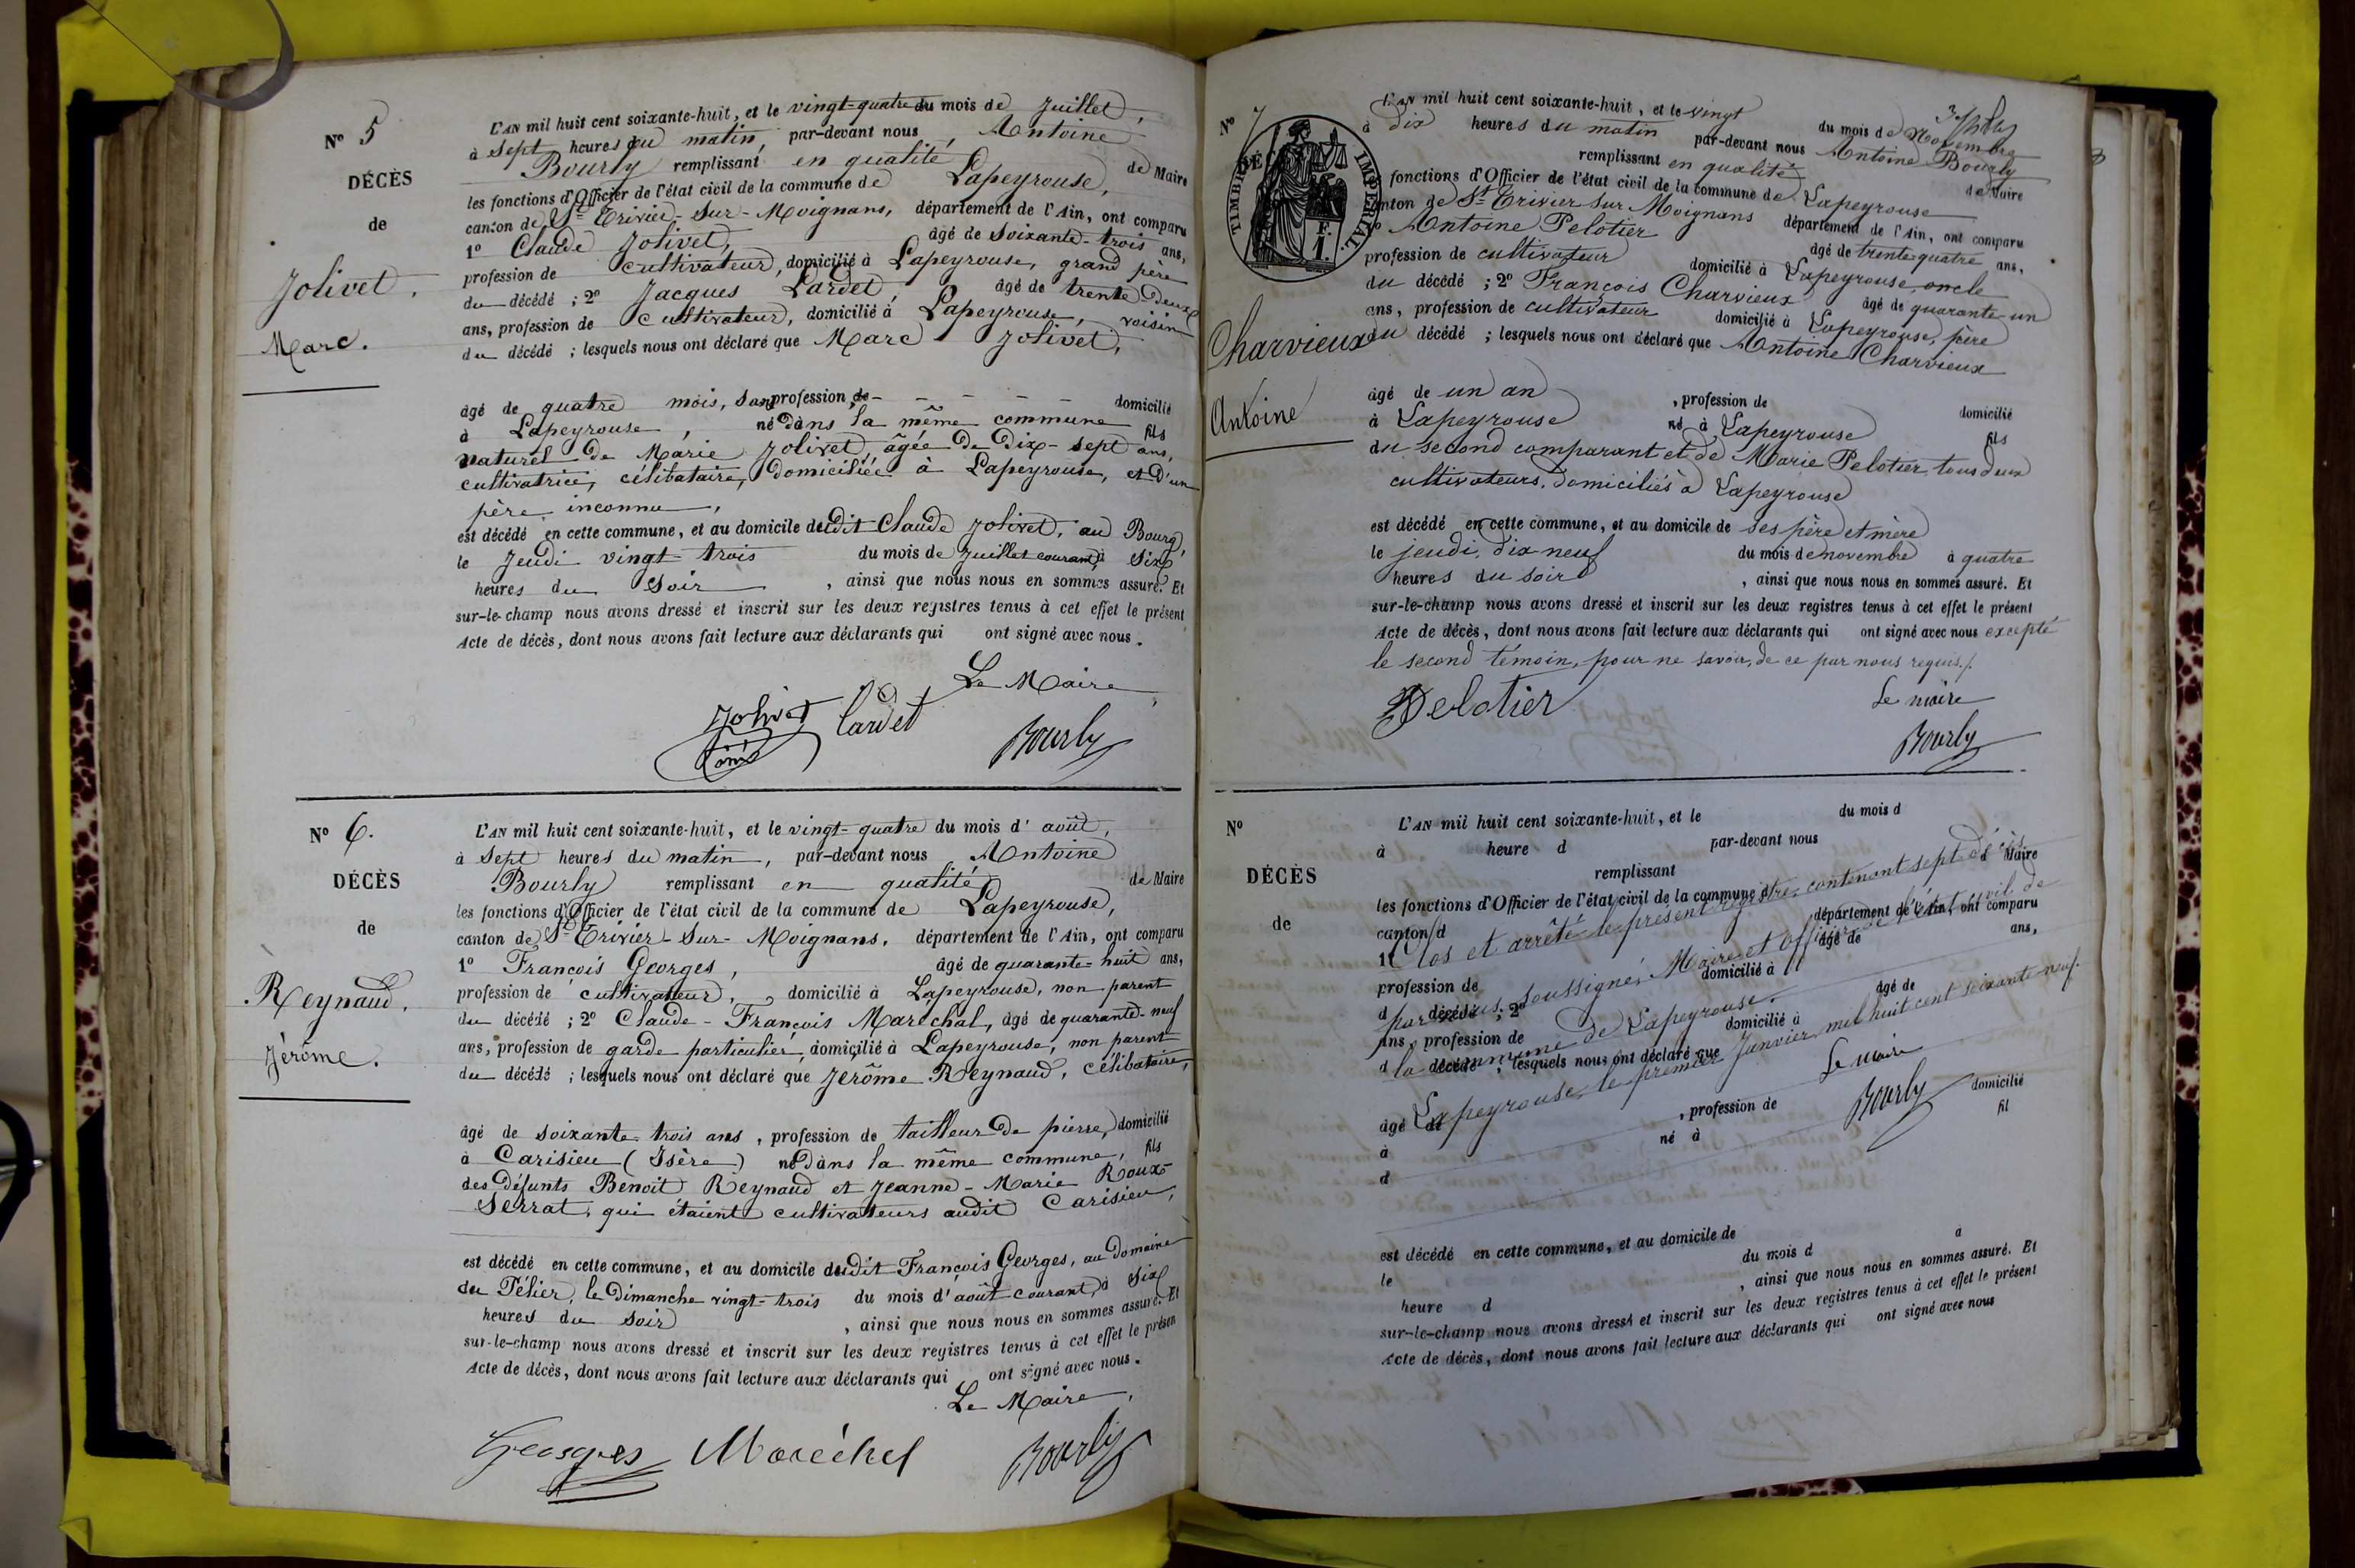 N° 5
DÉCÈS
de
Jolivet.
Marc.
L'AN mil huit cent soixante-huit, et le vingt-quatre du mois de Juillet,
à sept heures du matin, par-devant nous, Antoine
Bourly remplissant en qualité de Maire
les fonctions d'Officier de l'état civil de la commune de Lapeyrouse,
canton de St Trivier-Sur-Moignans, département de l'Ain, ont comparu
1° Claude Jolivet, âgé de soixante-trois ans,
profession de cultivateur, domicilié à Lapeyrouse, grand père
du décédé ; 2° Jacques Lardet, âgé de trente deux
ans, profession de cultivateur, domicilié à Lapeyrouse, voisin
du décédé ; lesquels nous ont déclaré que Marc Jolivet,
âgé de quatre mois, sans profession, de - - - - - domicilié
à Lapeyrouse, né dans la même commune fils
naturel de Marie Jolivet, âgée de dix-sept ans,
cultivatrice, célibataire, domiciliée à Lapeyrouse, et d'un
père inconnu,
est décédé en cette commune, et au domicile dudit Claude Jolivet, au Bourg,
le Jeudi vingt-trois du mois de Juillet courant, à six
heures du soir, ainsi que nous nous en sommes assuré. Et
sur-le-champ nous avons dressé et inscrit sur les deux registres tenus à cet effet le présent
Acte de décès, dont nous avons fait lecture aux déclarants qui ont signé avec nous.
Le Maire,
Jolivet Lardet Bourly
N° 6.
DÉCÈS
de
Reynaud.
Jérôme.
L'AN mil huit cent soixante-huit, et le vingt-quatre du mois d'août,
à sept heures du matin, par-devant nous Antoine
Bourly remplissant en qualité de Maire
les fonctions d'Officier de l'état civil de la commune de Lapeyrouse,
canton de St Trivier-Sur-Moignans, département de l'Ain, ont comparu
1° François Georges, âgé de quarante-huit ans,
profession de cultivateur, domicilié à Lapeyrouse, non parent
du décédé ; 2° Claude-François Maréchal, âgé de quarante-neuf
ans, profession de garde particulier, domicilié à Lapeyrouse, non parent
du décédé ; lesquels nous ont déclaré que Jérôme Reynaud, célibataire,
âgé de soixante-trois ans, profession de tailleur de pierre, domicilié
à Carisieu (Isère) né dans la même commune, fils
des défunts Benoît Reynaud et Jeanne-Marie Roux-
Serrat, qui étaient cultivateurs audit Carisieu,
est décédé en cette commune, et au domicile dudit François Georges, au Domaine
du Pélier, le Dimanche vingt-trois du mois d'août courant, à six
heures du soir, ainsi que nous nous en sommes assuré. Et
sur-le-champ nous avons dressé et inscrit sur les deux registres tenus à cet effet le présen
Acte de décès, dont nous avons fait lecture aux déclarants qui ont signé avec nous.
Le Maire,
Georges Maréchal Bourly
N° 7
TIMBRE IMPÉRIAL
F.
1.
Charvieux
Antoine
L'AN mil huit cent soixante-huit, et le vingt du mois de Novembre
à dix heures du matin par-devant nous Antoine Bourly
remplissant en qualité de Maire
fonctions d'Officier de l'état civil de la commune de Lapeyrouse
canton de St Trivier sur Moignans département de l'Ain, ont comparu
1° Antoine Pelotier âgé de trente-quatre ans,
profession de cultivateur domicilié à Lapeyrouse, oncle
du décédé ; 2° François Charvieux âgé de quarante-un
ans, profession de cultivateur domicilié à Lapeyrouse, père
du décédé ; lesquels nous ont déclaré que Antoine Charvieux
âgé de un an, profession de domicilié
à Lapeyrouse né à Lapeyrouse fils
du second comparant et de Marie Pelotier, tous deux
cultivateurs, domiciliés à Lapeyrouse
est décédé en cette commune, et au domicile de ses père et mère
le jeudi, dix neuf du mois de novembre à quatre
heures du soir, ainsi que nous nous en sommes assuré. Et
sur-le-champ nous avons dressé et inscrit sur les deux registres tenus à cet effet le présent
Acte de décès, dont nous avons fait lecture aux déclarants qui ont signé avec nous excepté
le second témoin, pour ne savoir, de ce par nous requis./.
Pelotier
Le maire
Bourly
N°
DÉCÈS
de
L'AN mil huit cent soixante-huit, et le du mois d
à heure d par-devant nous
remplissant d Maire
les fonctions d'Officier de l'état civil de la commune d
canton d département de l'Ain, ont comparu
1° âgé de ans,
profession de domicilié à
d décédé ; 2° âgé de
ans, profession de domicilié à
d décédé ; lesquels nous ont déclaré que
Clos et arrêté le présent registre, contenant sept décès
par nous, soussigné, Maire et officier de l'état civil de
la commune de Lapeyrouse.
Lapeyrouse, le premier Janvier mil huit cent soixante-neuf.
Le maire
Bourly
âgé de, profession de domicilié
à né à fil
d
est décédé en cette commune, et au domicile de
le du mois d à
heure d, ainsi que nous nous en sommes assuré. Et
sur-le-champ nous avons dressé et inscrit sur les deux registres tenus à cet effet le présent
Acte de décès, dont nous avons fait lecture aux déclarants qui ont signé avec nous